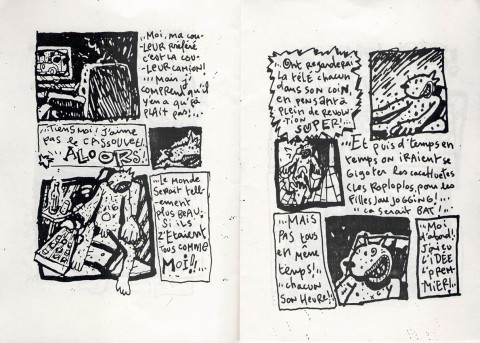 ...Moi, ma cou-
LEUR PRÉFÉRÉ
C'EST LA COU-
LEUR CAMION!
...MAIS J'
COMPRENT QU'IL
Y'EN A QU'ÇA
PLAÎT PAS!...
...TIENS MOI J'AIME
PAS LE CASSOULET!..
ALOORS!
...le MONDE
SERAIT TELL-
EMENT
PLUS BEAU,
SI ILS
Z'ÉTAIENT
TOUS COMME
MOI!!...
...ONT REGARDERAI
LA TÉLÉ CHACUN
DANS SON COIN,
EN PENSANT À
PLEIN DE REVOLU-
TION
SUPER!...
ET PUIS D'TEMPS EN
TEMPS ON IRAIENT SE
GIGOTER LES CACAHUETES
(LES ROPLOPLOS, POUR LES
FILLES) AU JOGGING!...
...ÇA SERAIT BAT!
...MAIS
PAS TOUS
EN MÊME
TEMPS!..
...CHACUN
SON HEURE!!
...MOI
D'ABORD!
J'AI EU
L'IDÉE
L'PREM-
MIER!...